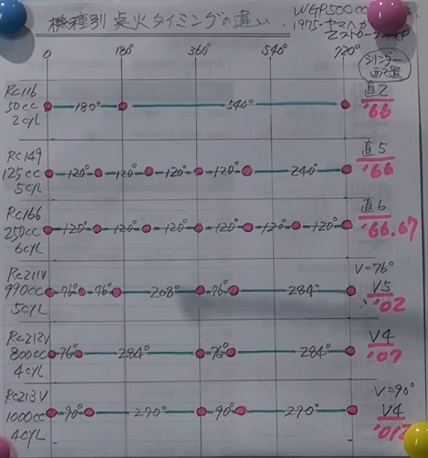 機種別 点火タイミングの違い.
WGP500cc
1975-ヤマハが
2ストローク
0 180° 360° 540° 720°
シリンダー
配置
RC116
50cc
2cyL
180° 540°
直2
'66
RC149
125cc
5cyL
120° 120° 120° 120° 240°
直5
'66
RC166
250cc
6cyL
120° 120° 120° 120° 120° 120°
直6
'66.67
RC211V
990cc
5cyL
76° 76° 208° 76° 284°
V=76°
V5
'02
RC212V
800cc
4cyL
76° 284° 76° 284°
V4
'07
RC213V
1000cc
4cyL
90° 270° 90° 270°
V=90°
V4
'012